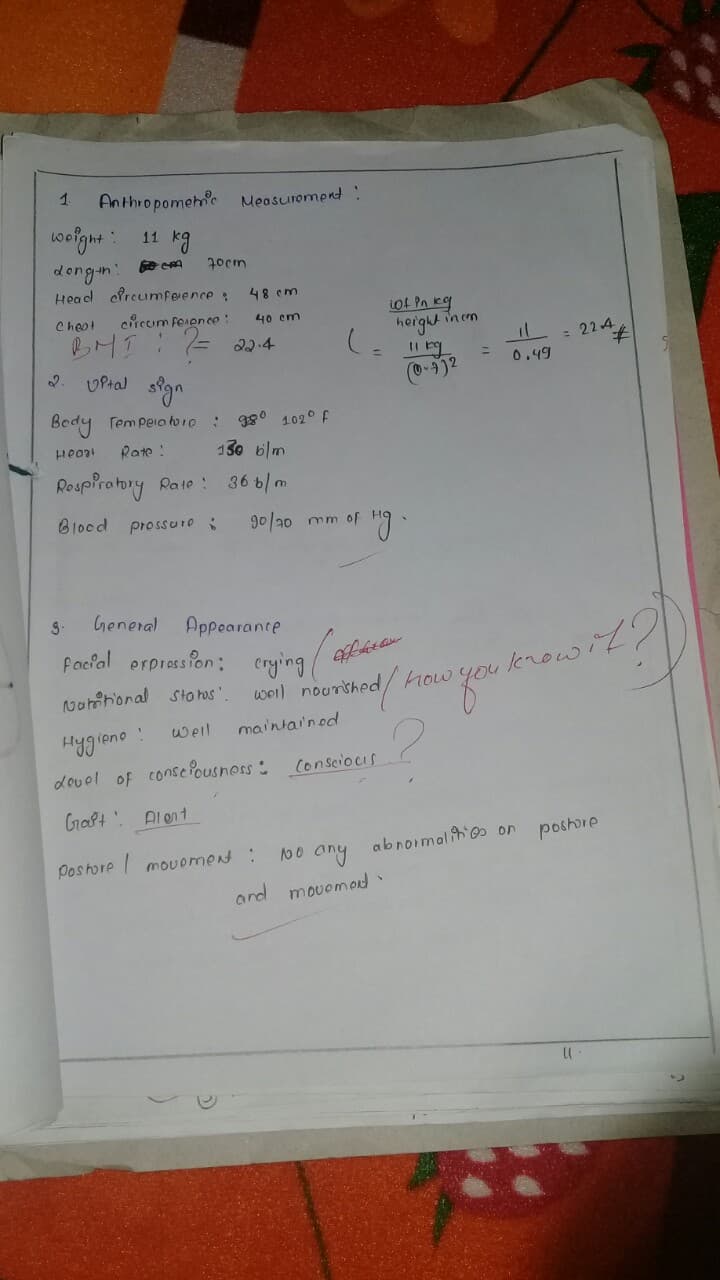 1. Anthropometric Measurement :
Weight : 11 kg
Length : 70cm
Head circumference : 48 cm
Chest circumference : 40 cm
BMI : ? = 22.4
( wt in kg / height in cm
= 11 kg / (0.7)² = 11 / 0.49 = 22.4
2. Vital sign
Body Temperature : 98° 102° F
Heart Rate : 130 b/m
Respiratory Rate : 36 b/m
Blood pressure : 90/70 mm of Hg.
3. General Appearance
Facial expression : crying (
Nutritional status : well nourished ( How you know it ? )
Hygiene : well maintained
Level of consciousness : conscious ?
Gait : Alert
Posture / movement : No any abnormalities on posture
and movement.
11.